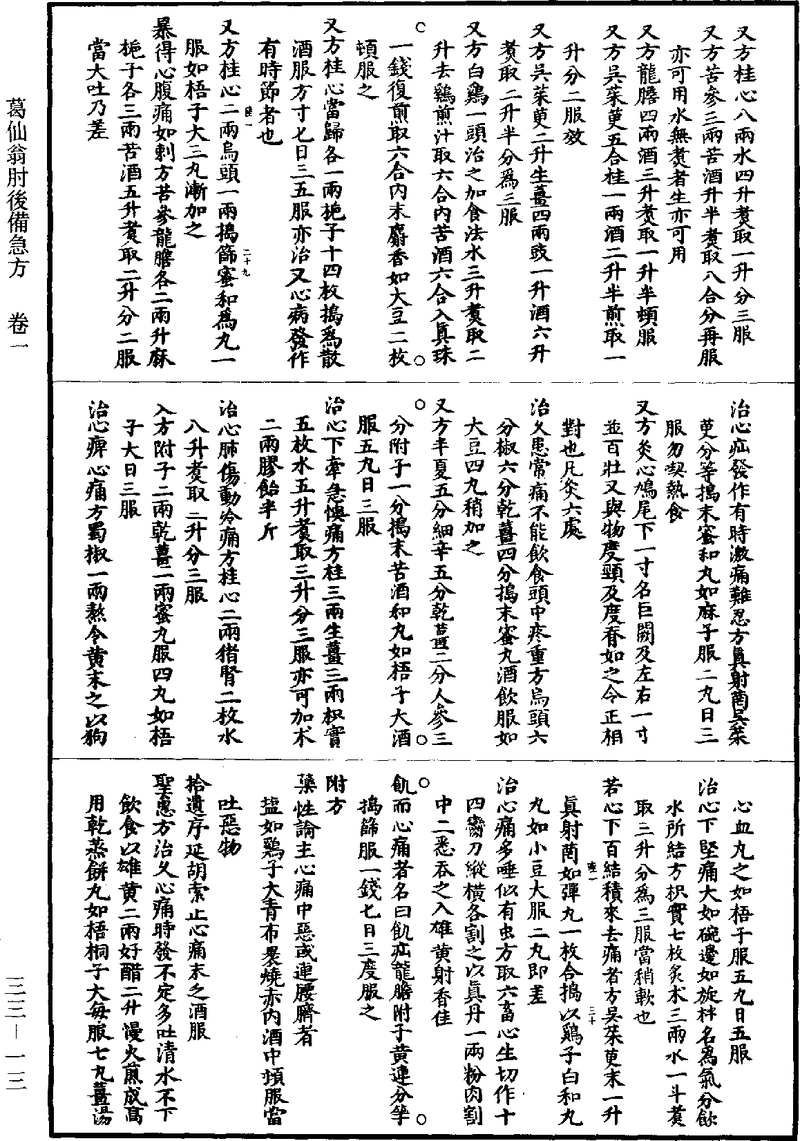 葛仙翁肘後備急方　卷一
又方桂心八兩水四升煑取一升分三服
又方苦參三兩苦酒升半煑取八合分再服
亦可用水無煑者生亦可用
又方龍膽四兩酒三升煑取一升半頓服
又方吳茱萸五合桂一兩酒二升半煎取一
升分二服效
又方吳茱萸二升生薑四兩豉一升酒六升
煑取二升半分爲三服
又方白鷄一頭治之加食法水三升煑取二
升去鷄煎汁取六合內苦酒六合入眞珠
一錢復煎取六合內末麝香如大豆二枚
頓服之
又方桂心當歸各一兩梔子十四枚搗爲散
酒服方寸七日三五服亦治又心病發作
有時節者也
又方桂心二兩烏頭一兩搗篩蜜和爲丸一
服如梧子大三丸漸加之
暴得心腹痛如刺方苦參龍膽各二兩升麻
梔子各三兩苦酒五升煑取二升分二服
當大吐乃差
治心疝發作有時激痛難忍方眞射菵吳茱
萸分等搗末蜜和丸如麻子服二丸日三
服勿喫熱食
又方灸心鳩尾下一寸名巨闕及左右一寸
並百壯又與物度頸及度脊如之令正相
對也凡灸六處
治久患常痛不能飲食頭中疼重方烏頭六
分椒六分乾薑四分搗末蜜丸酒飲服如
大豆四丸稍加之
又方半夏五分細辛五分乾薑二分人參三
分附子一分搗末苦酒和丸如梧子大酒
服五丸日三服
治心下牽急懊痛方桂三兩生薑三兩枳實
五枚水五升煑取三升分三服亦可加术
二兩膠飴半斤
治心肺傷動冷痛方桂心二兩猪腎二枚水
八升煑取二升分三服
入方附子二兩乾薑一兩蜜丸服四丸如梧
子大日三服
治心痺心痛方蜀椒一兩熬令黄末之以狗
心血丸之如梧子服五丸日五服
治心下堅痛大如碗邊如旋柈名爲氣分飲
水所結方枳實七枚炙术三兩水一斗煑
取三升分爲三服當稍軟也
若心下百結積來去痛者方吳茱萸末一升
眞射菵如彈丸一枚合搗以鷄子白和丸
丸如小豆大服二丸即差
治心痛多唾似有虫方取六畜心生切作十
四臠刀縱橫各割之以眞丹一兩粉肉割
中二悉吞之入雄黃射香佳
飢而心痛者名曰飢疝龍膽附子黃連分等
搗篩服一錢七日三度服之
附方
藥性論主心痛中惡或連腰臍者
盐如鷄子大青布裹燒赤內酒中頓服當
吐惡物
拾遺序延胡索止心痛末之酒服
聖惠方治久心痛時發不定多吐清水不下
飲食以雄黃二兩好醋二升慢火煎成膏
用乾蒸餠丸如梧桐子大每服七丸薑湯
二十九
三十
三三—一三